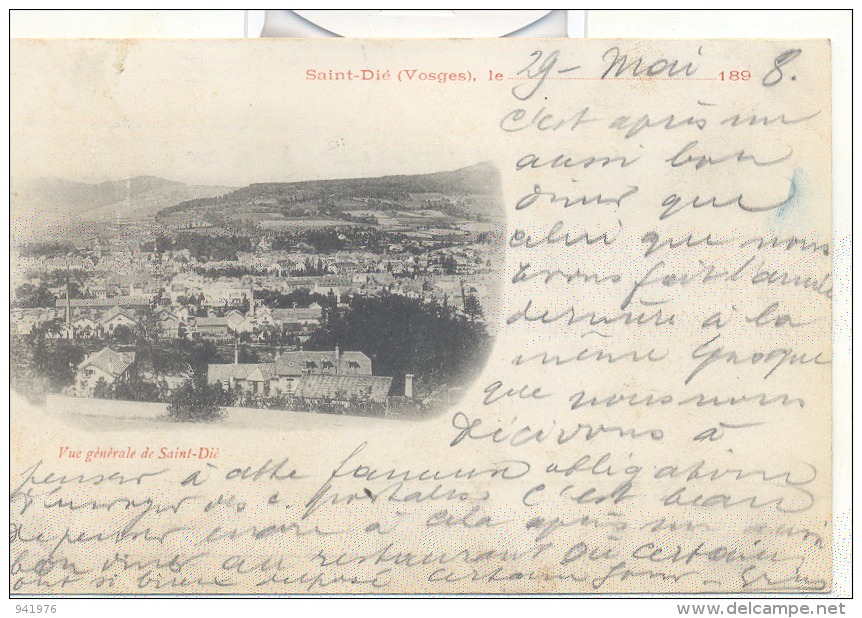 Saint-Dié (Vosges), le 29 - Mai 1898.
C'est après un
aussi bon
diner que
celui que nous
avons fait l'année
dernière à la
même époque
que nous nous
décidons à
penser à cette fameuse obligation
d'envoyer des c. postales C'est beau
de penser encore à cela après un aussi
bon diner au restaurant où certain
ont si bien
certain jour
Vue générale de Saint-Dié
941976
http://www.delcampe.net